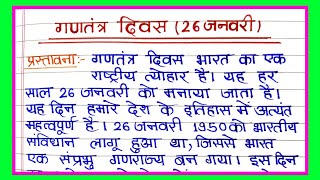 गणतंत्र दिवस (26 जनवरी)
प्रस्तावना:- गणतंत्र दिवस भारत का एक
राष्ट्रीय त्योहार है। यह हर
साल 26 जनवरी को मनाया जाता है।
यह दिन हमारे देश के इतिहास में अत्यंत
महत्वपूर्ण है। 26 जनवरी 1950 को भारतीय
संविधान लागू हुआ था, जिससे भारत
एक संप्रभु गणराज्य बन गया। इस दिन